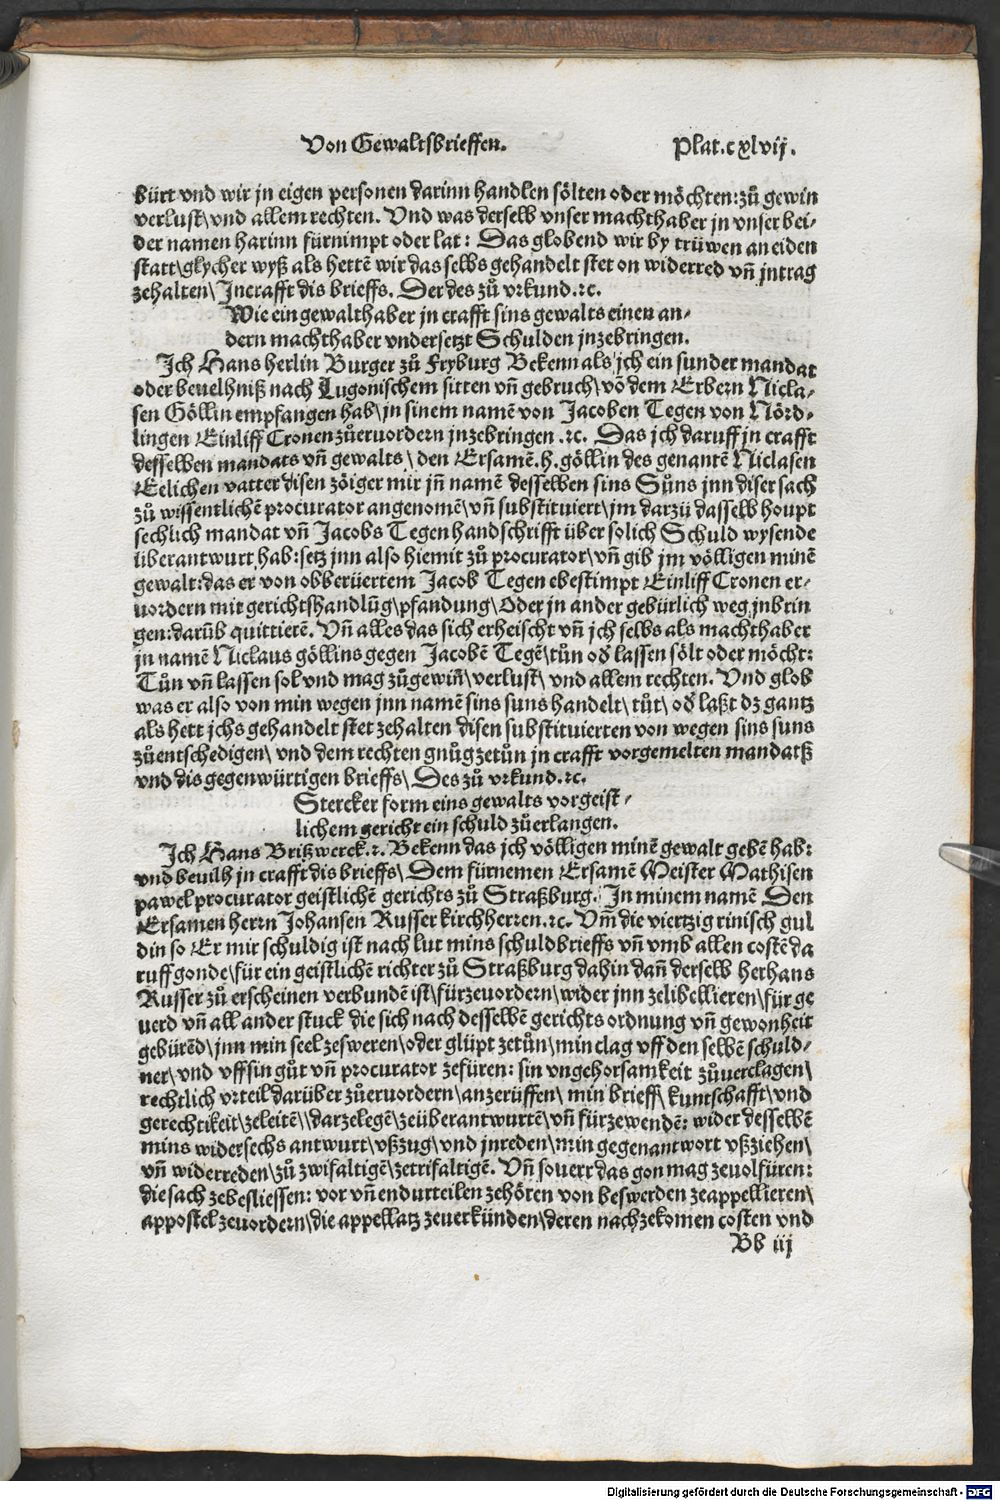 Von Gewaltsbrieffen. Plat.cxlvij.
bürt vnd wir jn eigen personen darinn handlen sölten oder möchten: zů gewin
verlust\ vnd allem rechten. Vnd was derselb vnser machthaber jn vnser bei⸗
der namen harinn fürnimpt oder lat: Das globend wir by trüwen an eiden
statt\ glycher wyß als hettē wir das selbs gehandelt stet on widerred vñ jntrag
zehalten\ Jncrafft dis brieffs. Der des zů vrkund.⁊c.
Wie ein gewalthaber jn crafft sins gewalts einen an⸗
dern machthaber vndersetzt Schulden jnzebringen.
Jch Hans herlin Burger zů Fryburg Bekenn als jch ein sunder mandat
oder beuelhniß nach Lugonischem sitten vñ gebruch\ vō dem Erbern Nicla⸗
sen Göllin empfangen hab\ jn sinem namē von Jacoben Tegen von Nörd⸗
lingen Einliff Cronen zůeruordern jnzebringen .⁊c. Das jch daruff jn crafft
desselben mandats vñ gewalts\ den Ersamē.h.göllin des genantē Niclasen
Eelichen vatter disen zöiger mir jñ namē desselben sins Sůns jnn diser sach
zů wissentlichē procurator angenomē\ vñ substituiert\ jm darzů dasselb houpt
sechlich mandat vñ Jacobs Tegen handschrifft über solich Schuld wysende
liberantwurt hab: setz jnn also hiemit zů procurator\ vñ gib jm völligen minē
gewalt: das er von obberüertem Jacob Tegen ebestimpt Einliff Cronen er⸗
uordern mit gerichtshandlūg\ pfandung\ Oder jn ander gebürlich weg jnbrin
gen: darūb quittierē. Vñ alles das sich erheischt vñ jch selbs als machthaber
jn namē Niclaus göllins gegen Jacobē Tegē\ tůn oď lassen sölt oder möcht:
Tůn vñ lassen sol vnd mag zůgewiñ\ verlust\ vnd allem rechten. Vnd glob
was er also von min wegen jnn namē sins suns handelt\ tůt\ oď laßt dz gantz
als hett jchs gehandelt stet zehalten disen substituierten von wegen sins suns
zůentschedigen\ vnd dem rechten gnůg zetůn jn crafft vorgemelten mandatß
vnd dis gegenwürtigen brieffs\ Des zů vrkund.⁊c.
Stercker form eins gewalts vorgeist⸗
lichem gericht ein schuld zůerlangen.
Jch Hans Britzwerck.⁊. Bekenn das jch völligen minē gewalt gebē hab:
vnd beuilh jn crafft dis brieffs\ Dem fürnemen Ersamē Meister Mathisen
pawel procurator geistlichē gerichts zů Straßburg. Jn minem namē Den
Ersamen herrn Johansen Russer kirchherren.⁊c. Vm̄ die viertzig rinisch gul
din so Er mir schuldig ist nach lut mins schuldbrieffs vñ vmb allen costē da
ruff gonde\ für ein geistlichē richter zů Straßburg dahin dañ derselb her hans
Russer zů erscheinen verbundē ist\ fürzeuordern\ wider jnn zelibellieren\ für ge
uerd vñ all ander stuck die sich nach desselbē gerichts ordnung vñ gewonheit
gebürēd\ jnn min seel zesweren\ oder glüpt zetůn\ min clag vff den selbē schuld⸗
ner\ vnd vff sin gůt vñ procurator zefüren: sin vngehorsamkeit zůuerclagen\
rechtlich vrteil darüber zůeruordern\ anzerüffen\ min brieff\ kuntschafft\ vnd
gerechtikeit\ zeleitē\ \darzelegē\ zeüberantwurtē\ vñ fürzewendē: wider desselbē
mins widersechs antwurt\ vßzug\ vnd jnreden\ min gegenantwort vßziehen\
vñ widerreden\ zů zwifaltigē\ zetrifaltigē. Vñ souerr das gon mag zeuolfüren:
die sach zebesliessen: vor vñ end urteilen zehören von beswerden zeappellieren\
appostel zeuordern\ die appellatz zeuerkünden\ deren nachzekomen costen vnd
Bb iij
Digitalisierung gefördert durch die Deutsche Forschungsgemeinschaft - DFG